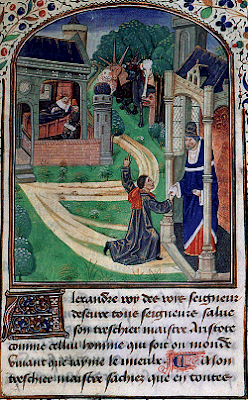 Alexandre roy des roys seigneur
dessure tous seigneurs salue
son treschier maistre Aristote
comme cellui homme qui soit ou monde
viuant que iayme le mieulx Mon
treschier maistre sachez que en toutes